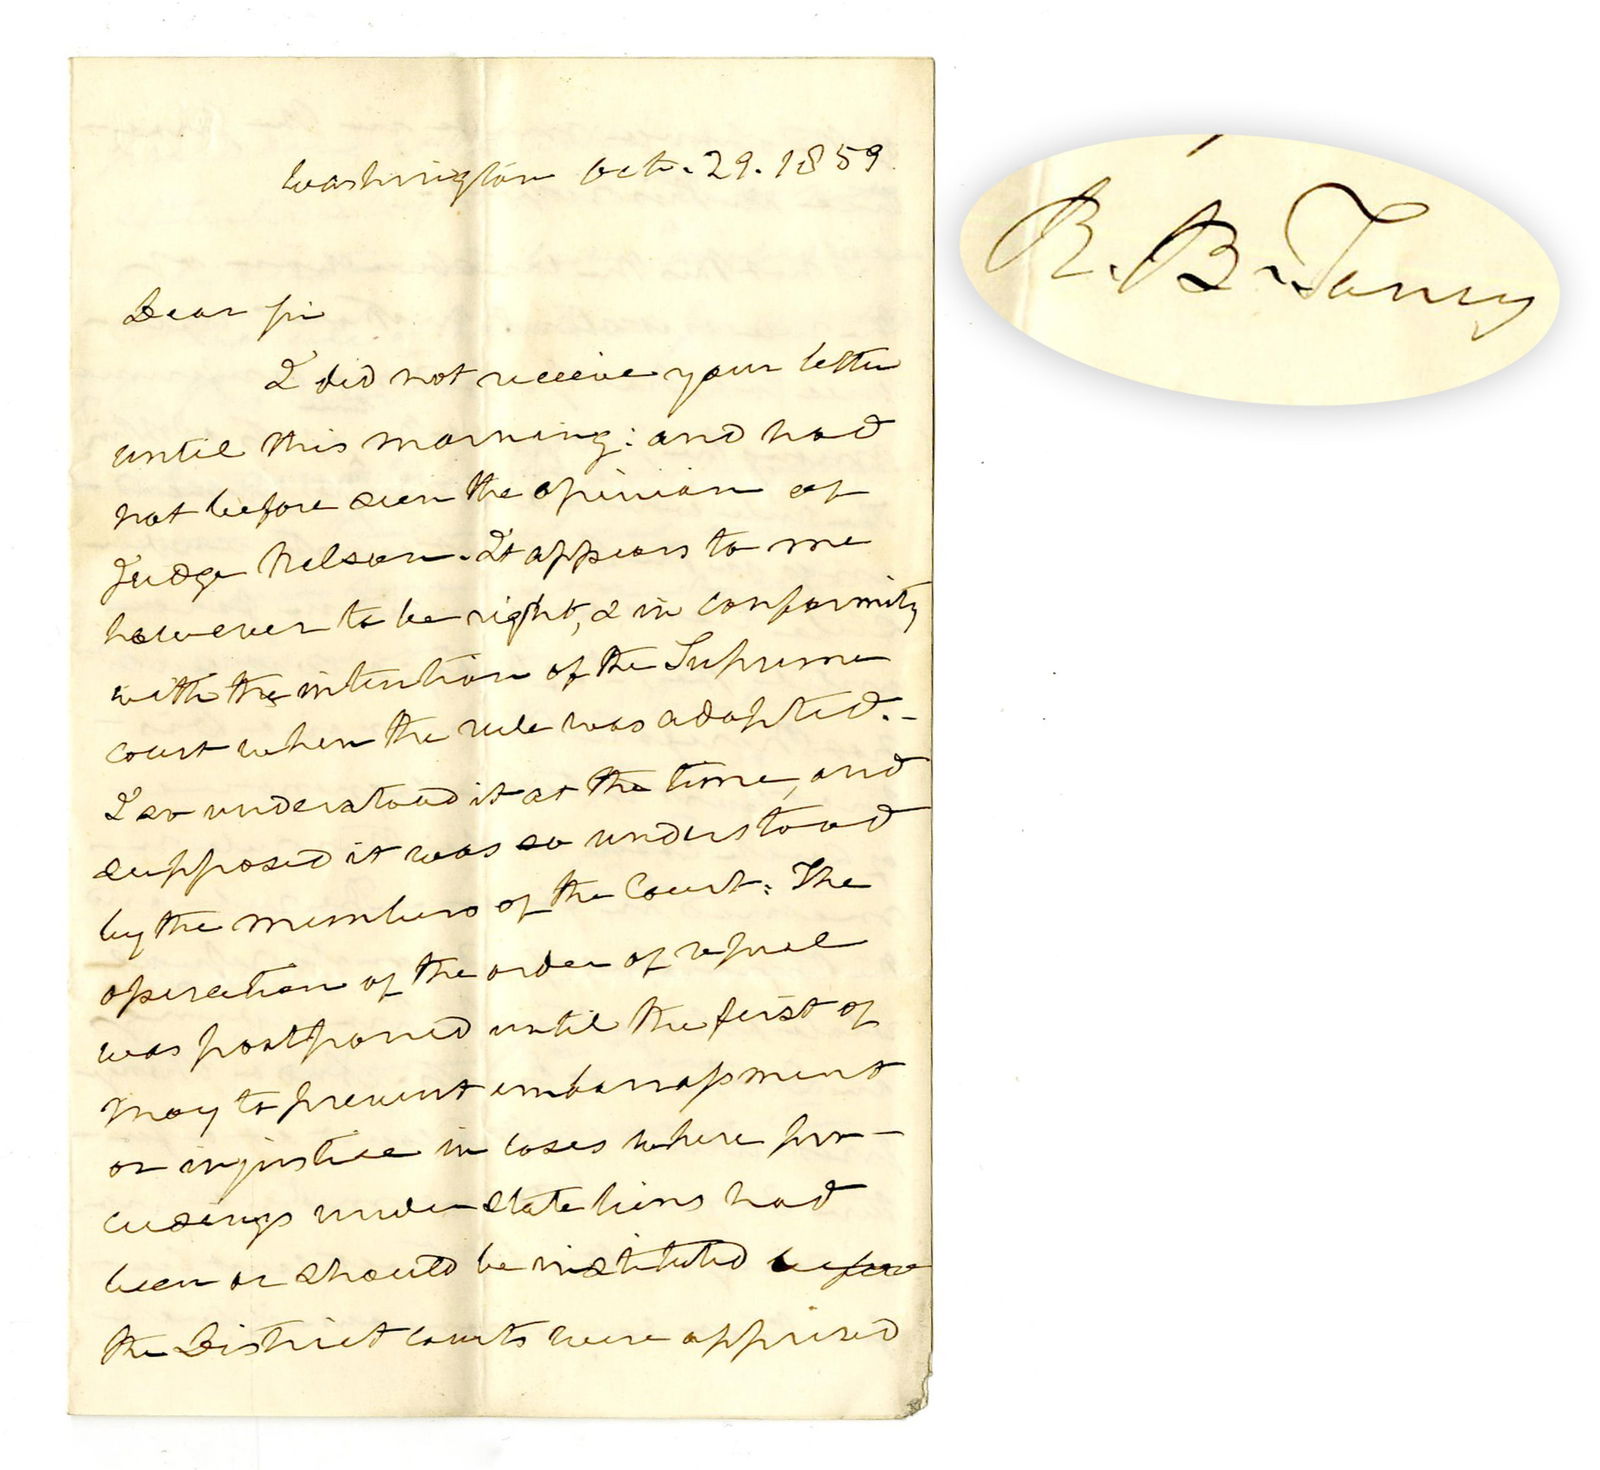 Washington Oct. 29. 1859.
Dear Sir
I did not receive your letter
until this morning: and had
not before seen the opinion of
Judge Nelson. It appears to me
however to be right, & in conformity
with the intention of the Supreme
court when the rule was adopted. -
I so understood it at the time, and
supposed it was so understood
by the members of the Court: The
operation of the order of repeal
was postponed until the first of
May to prevent embarrassment
or injustice in cases where pro-
ceedings under State liens had
been or should be instituted before
the District courts were apprised
R. B. Taney